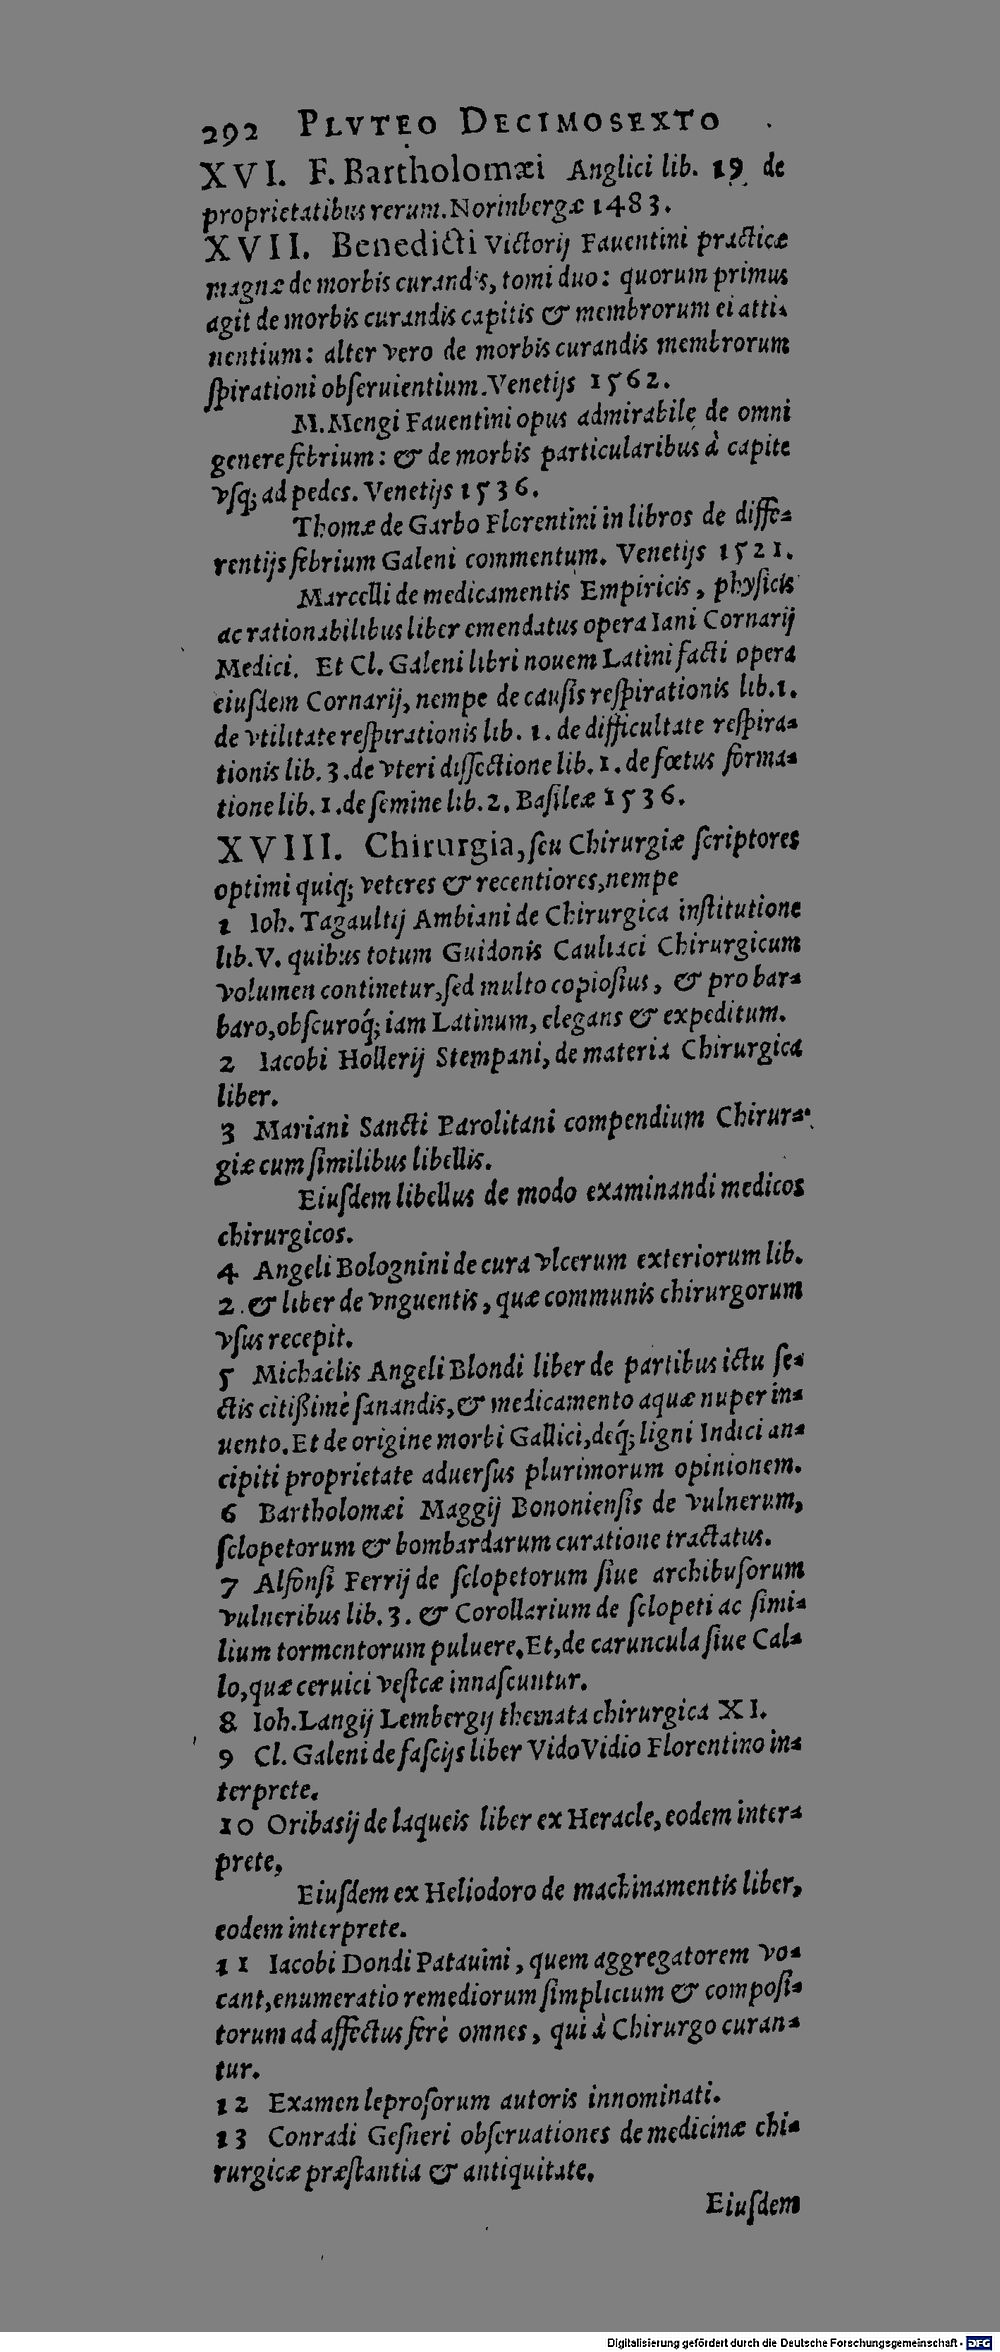 292 PLVTEO DECIMOSEXTO
XVI. F. Bartholomæi Anglici lib. 19 de
proprietatibus rerum. Norinbergæ 1483.
XVII. Benedicti Victorij Fauentini practicæ
magnæ de morbis curandis, tomi duo: quorum primus
agit de morbis curandis capitis & membrorum ei atti-
nentium: alter vero de morbis curandis membrorum
ſpirationi obſeruientium. Venetijs 1562.
M. Mengi Fauentini opus admirabile de omni
genere febrium: & de morbis particularibus à capite
vſq; ad pedes. Venetijs 1536.
Thomæ de Garbo Florentini in libros de diffe-
rentijs febrium Galeni commentum. Venetijs 1521.
Marcelli de medicamentis Empiricis, phyſicis
ac rationabilibus liber emendatus opera Iani Cornarij
Medici. Et Cl. Galeni libri nouem Latini facti opera
eiuſdem Cornarij, nempe de cauſis reſpirationis lib. 1.
de vtilitate reſpirationis lib. 1. de difficultate reſpira-
tionis lib. 3. de vteri diſſectione lib. 1. de fœtus forma-
tione lib. 1. de ſemine lib. 2. Baſileæ 1536.
XVIII. Chirurgia, ſeu Chirurgiæ ſcriptores
optimi quiq; veteres & recentiores, nempe
1 Ioh. Tagaultij Ambiani de Chirurgica inſtitutione
lib. V. quibus totum Guidonis Cauliaci Chirurgicum
volumen continetur, ſed multo copioſius, & pro bar-
baro, obſcuroq́; iam Latinum, elegans & expeditum.
2 Iacobi Hollerij Stempani, de materia Chirurgica
liber.
3 Mariani Sancti Parolitani compendium Chirur-
giæ cum ſimilibus libellis.
Eiuſdem libellus de modo examinandi medicos
chirurgicos.
4 Angeli Bolognini de cura vlcerum exteriorum lib.
2. & liber de vnguentis, quæ communis chirurgorum
vſus recepit.
5 Michaèlis Angeli Blondi liber de partibus ictu ſe-
ctis citißimè ſanandis, & medicamento aquæ nuper in-
uento. Et de origine morbi Gallici, deq́; ligni Indici an-
cipiti proprietate aduerſus plurimorum opinionem.
6 Bartholomæi Maggij Bononienſis de vulnerum,
ſclopetorum & bombardarum curatione tractatus.
7 Alfonſi Ferrij de ſclopetorum ſiue archibuſorum
vulneribus lib. 3. & Corollarium de ſclopeti ac ſimi-
lium tormentorum puluere. Et, de caruncula ſiue Cal-
lo, quæ ceruici veſicæ innaſcuntur.
8 Ioh. Langij Lembergij themata chirurgica XI.
9 Cl. Galeni de faſcijs liber Vido Vidio Florentino in-
terprete.
10 Oribasij de laqueis liber ex Heracle, eodem inter-
prete,
Eiuſdem ex Heliodoro de machinamentis liber,
eodem interprete.
11 Iacobi Dondi Patauini, quem aggregatorem vo-
cant, enumeratio remediorum ſimplicium & compoſi-
torum ad affectus ferè omnes, qui à Chirurgo curan-
tur.
12 Examen leproſorum autoris innominati.
13 Conradi Geſneri obſeruationes de medicinæ chi-
rurgicæ præſtantia & antiquitate.
Eiuſdem
Digitalisierung gefördert durch die Deutsche Forschungsgemeinschaft - DFG